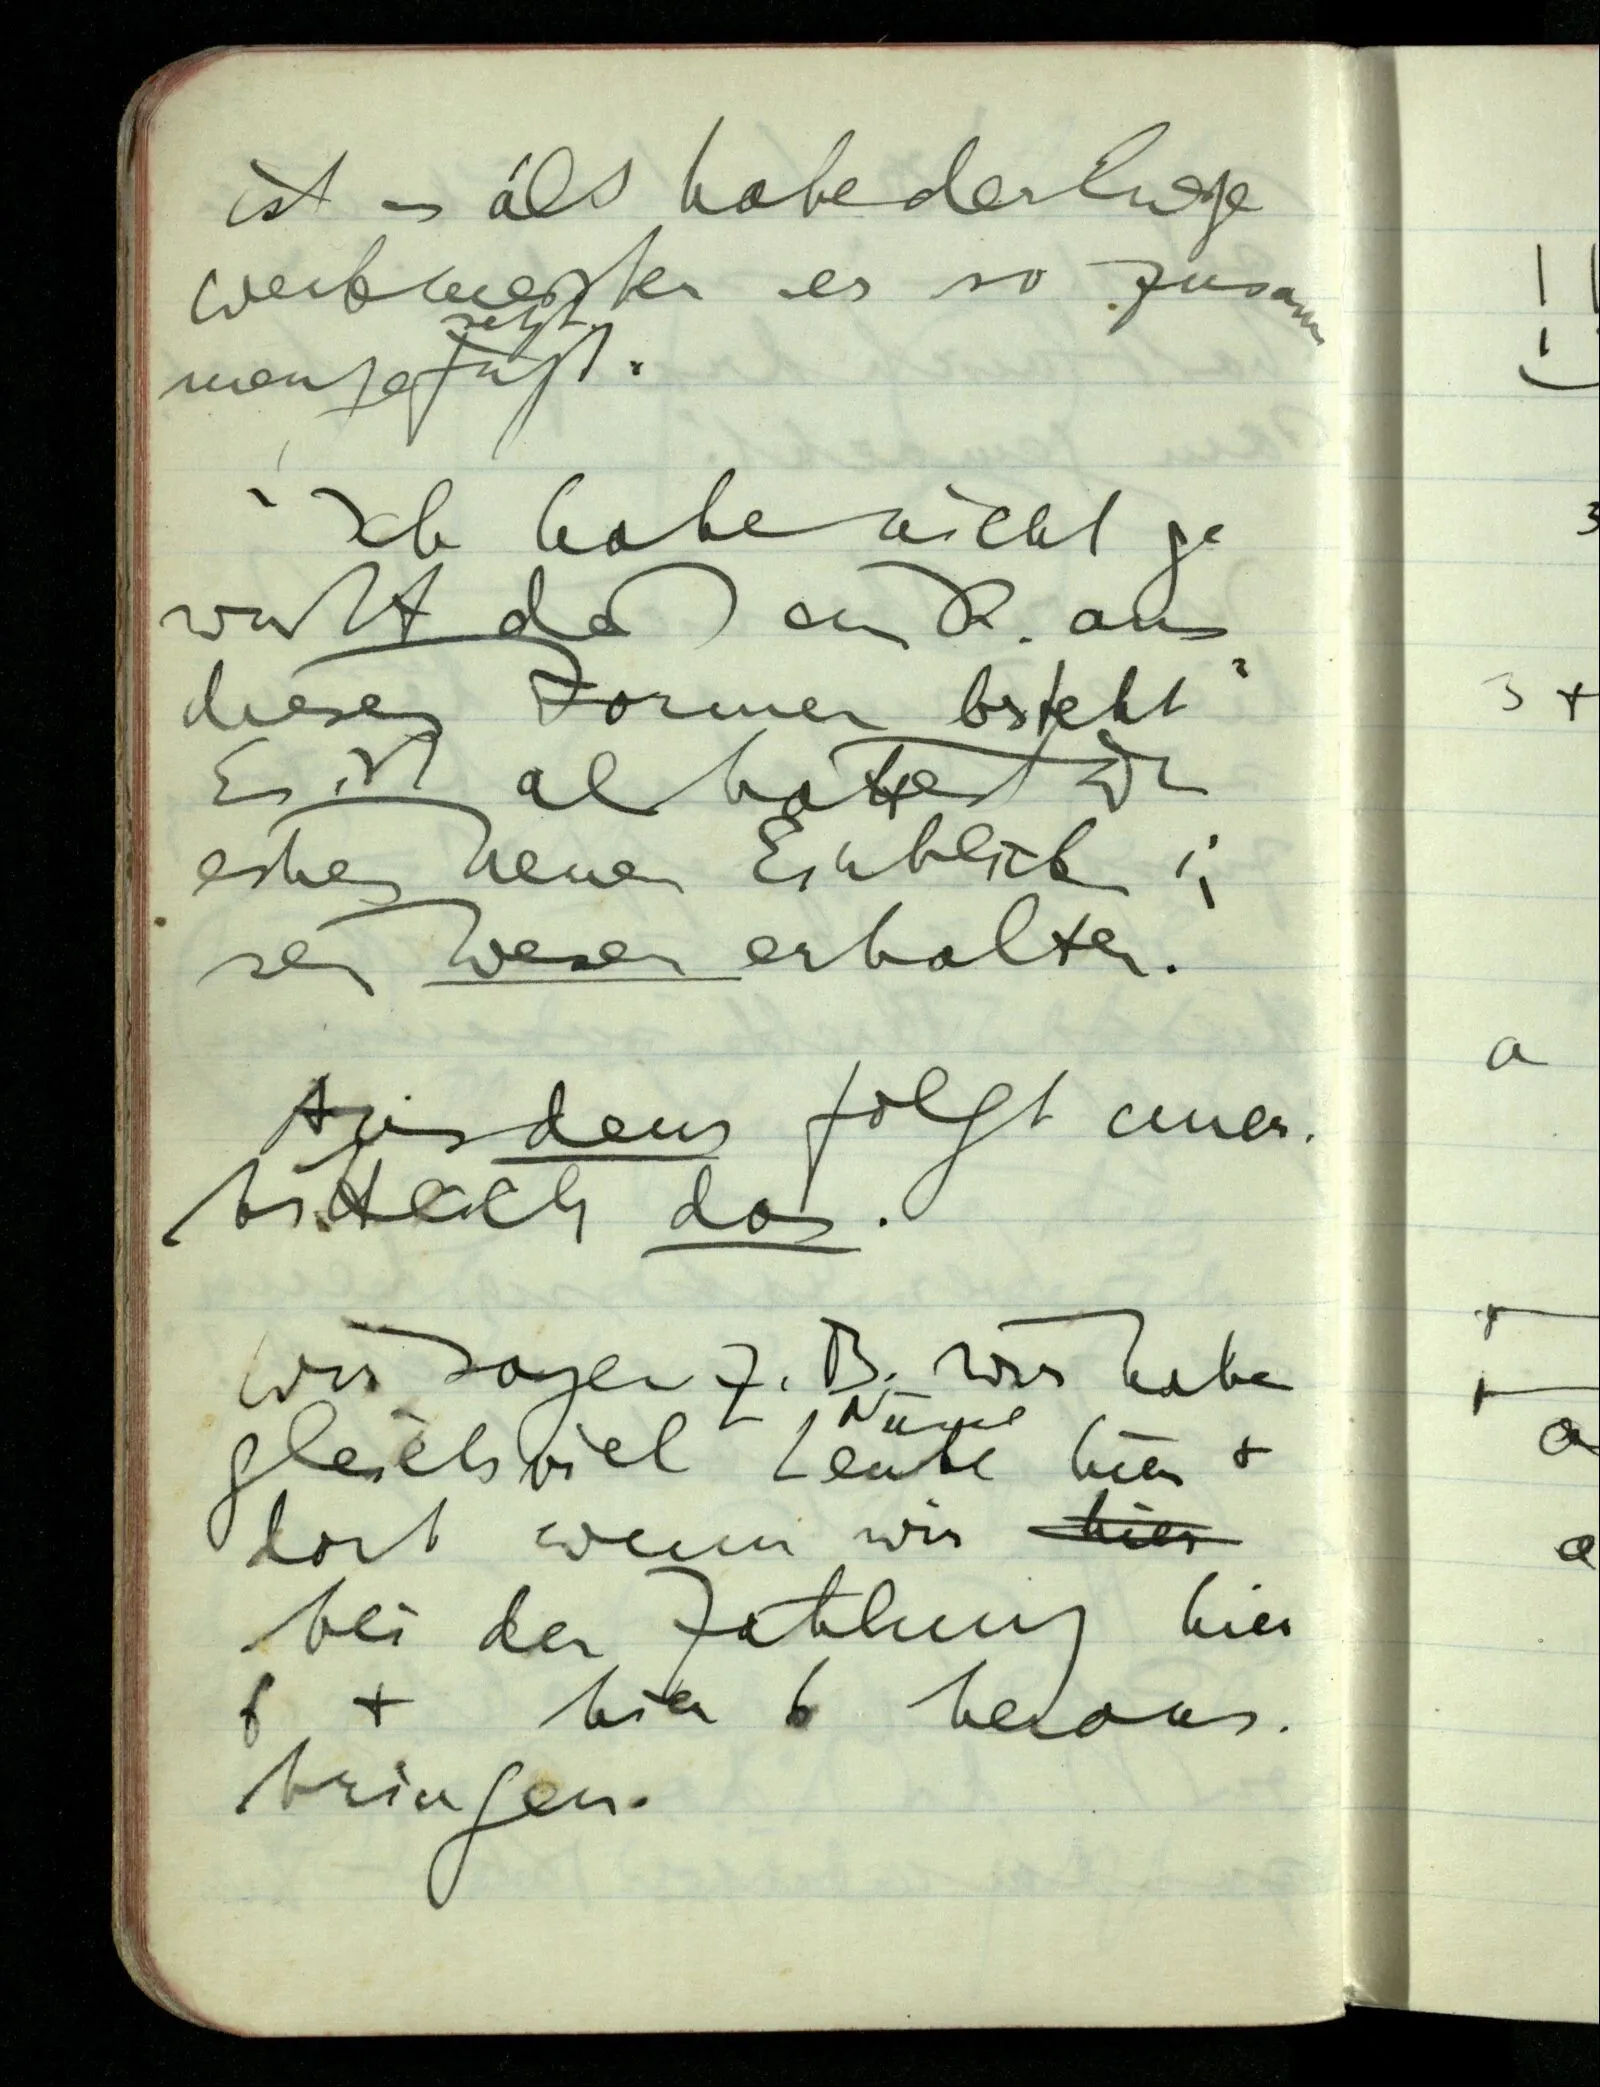 ist es als habe der Ewige
Werkmeister es so zusam
setzt
mengefügt.
"Ich habe nicht ge
wußt daß ein R. aus
diesen Formen besteht"
Es ist als hattest Du
einen neuen Einblick in
sein Wesen erhalten.
Aus dem folgt uner-
bittlich das.
Wir sagen z. B. wir haben
Nüsse
gleichviel Leute hier +
dort wenn wir hier
bei der Zahlung hier
6 + hier 6 heraus-
bringen.
3
3 +
a
a
a